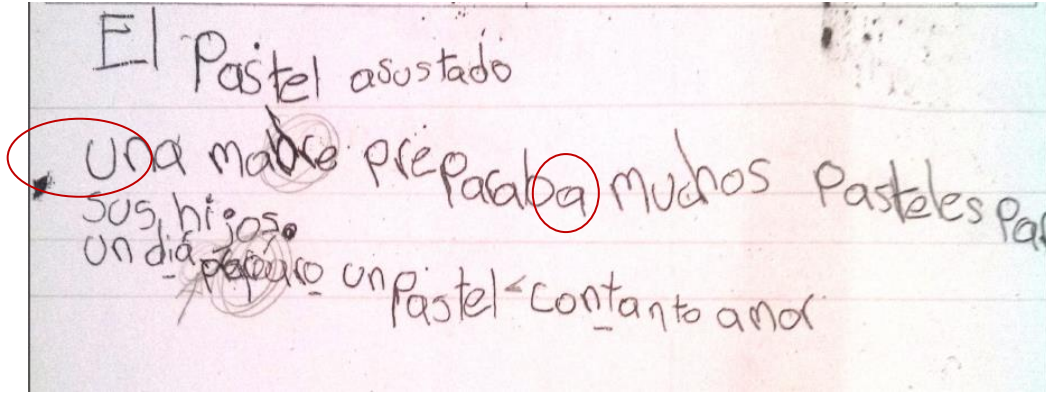 El Pastel asustado
una madre preparaba muchos Pasteles Par
sus hijos.
un dia un Pastel contanto amor